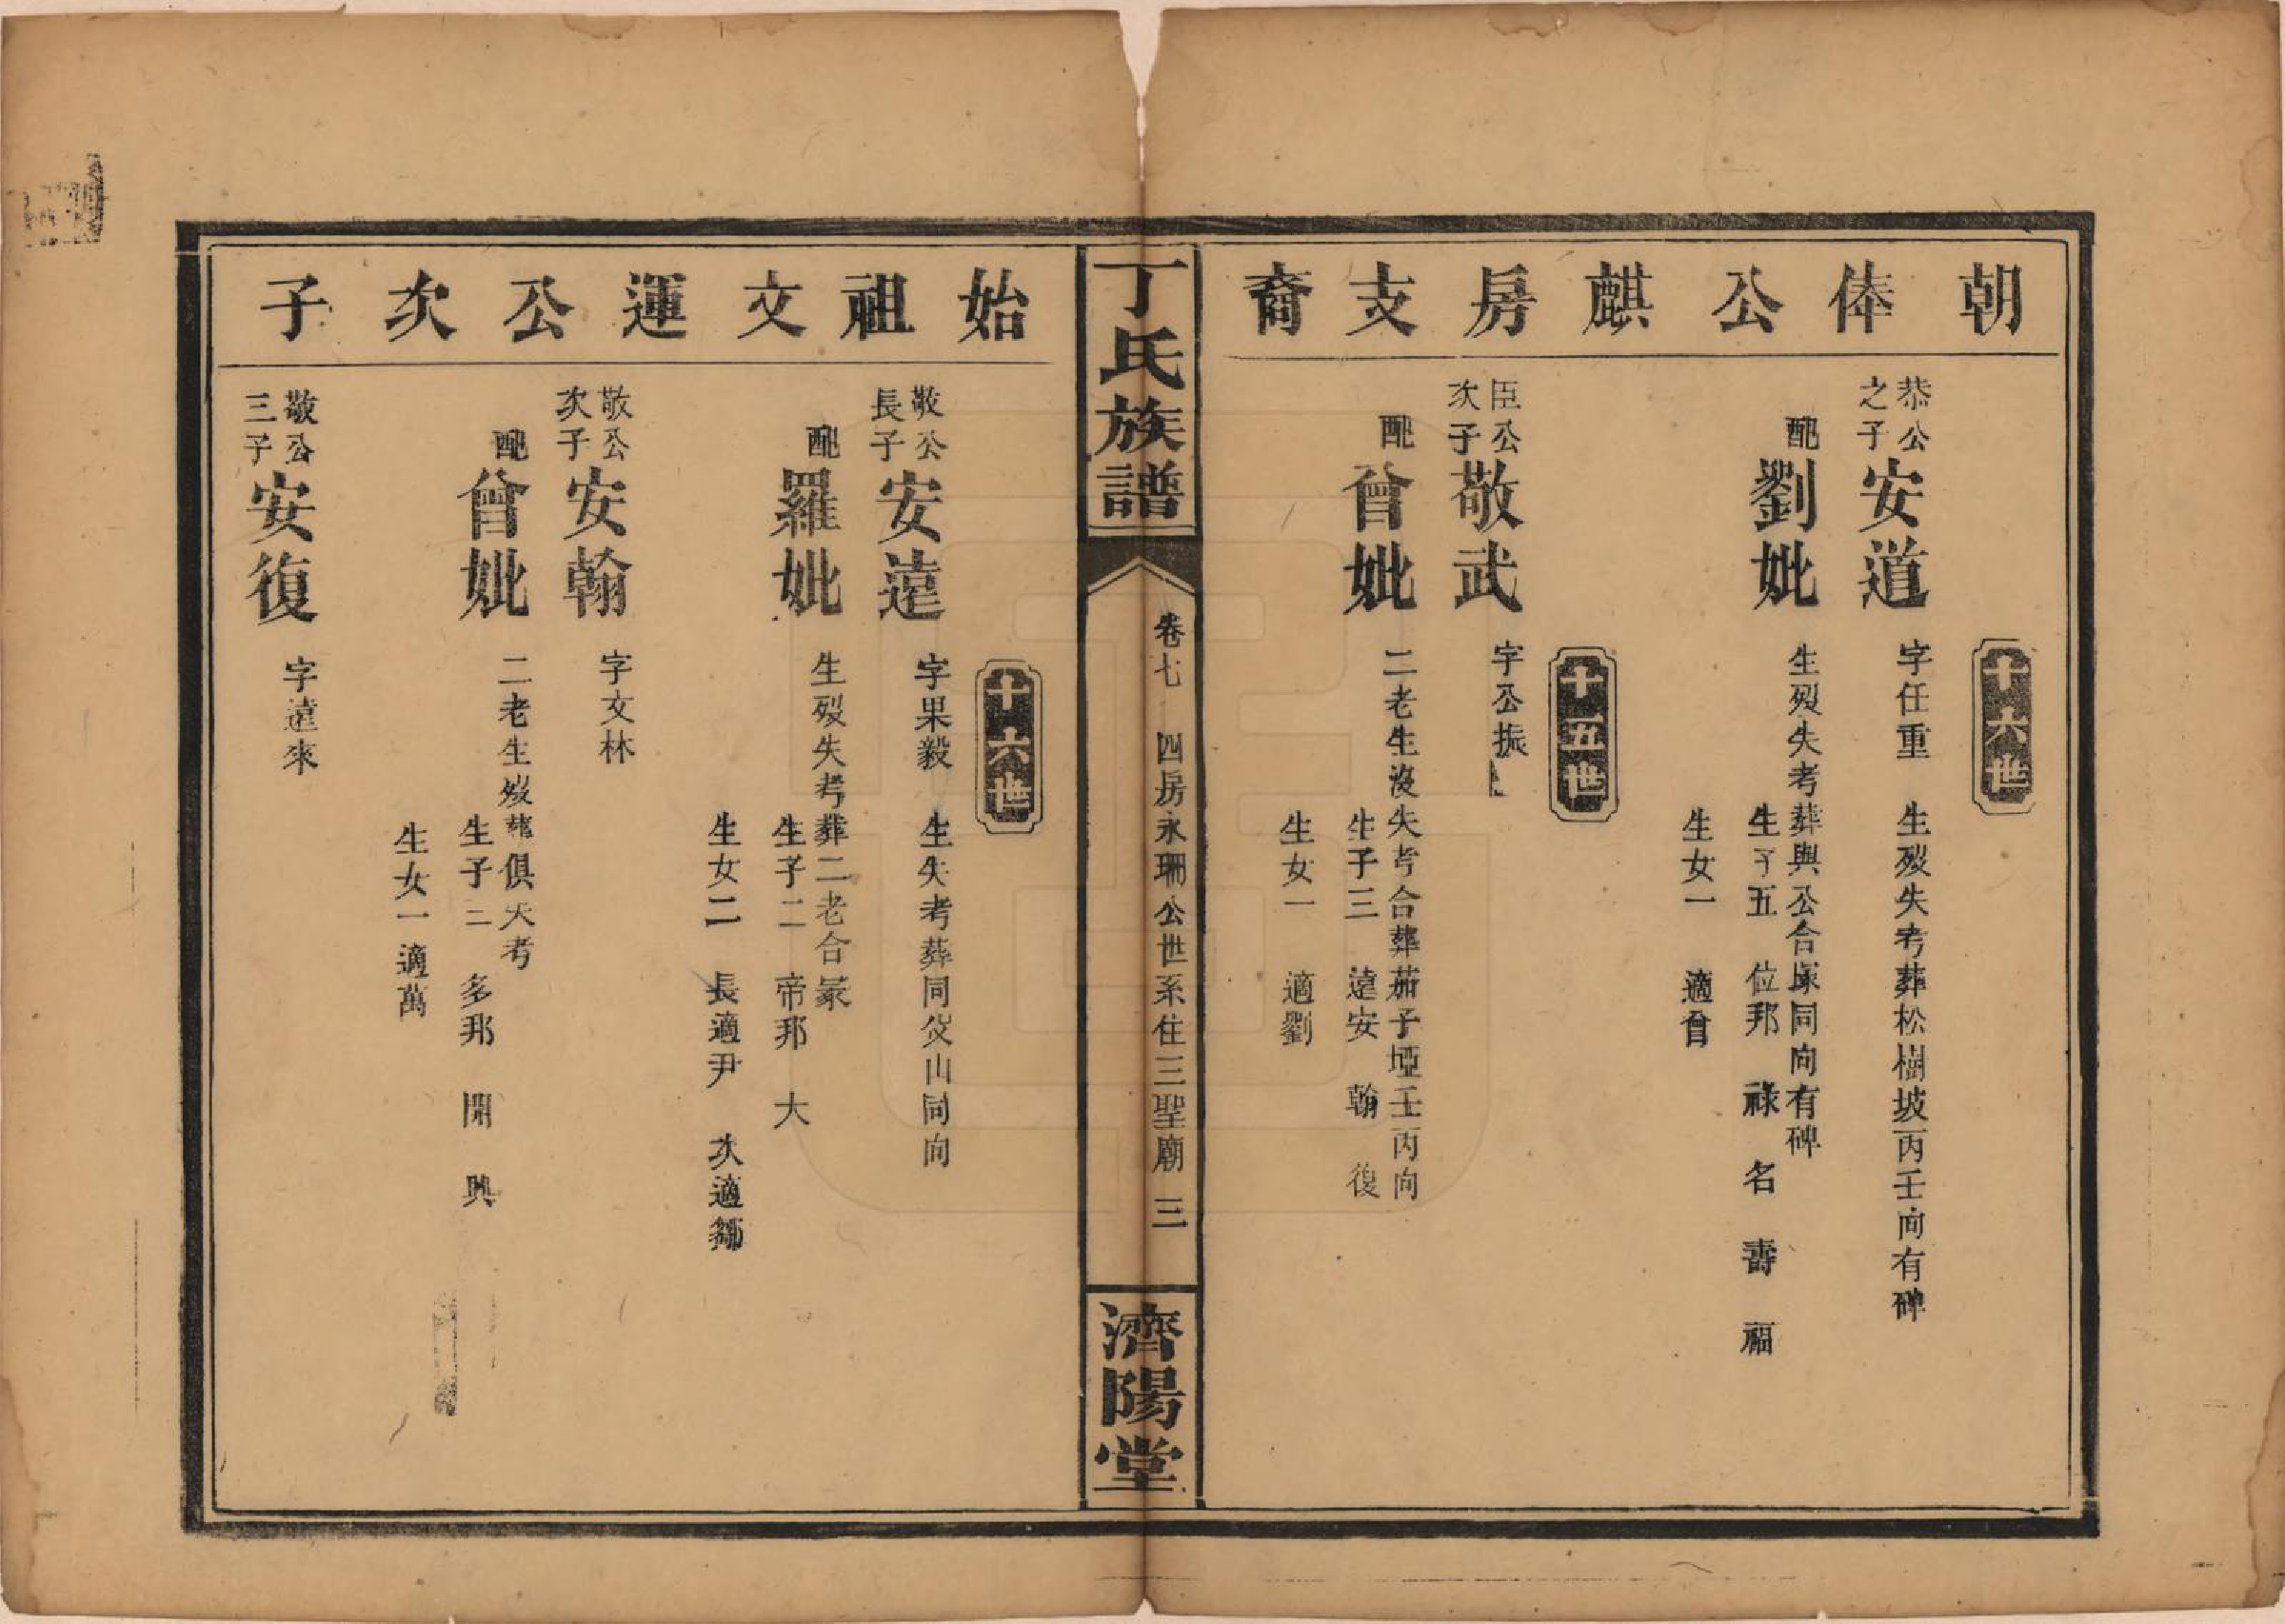 朝俸公麒房支裔
十六世
恭公之子 安道 字任重 生歿失考葬松樹坡丙壬向有碑
配 劉妣 生歿失考葬與公合塚同向有碑
生子五 位邦 祿 名 壽 福
生女一 適曾
十五世
臣公次子 敬武 字公振
配 曾妣 二老生沒失考合葬茄子埡壬丙向
生子三 遠安 翰 復
生女一 適劉
丁氏族譜
卷七 四房永珊公世系住三聖廟 三
濟陽堂
始祖文運公次子
十六世
敬公長子 安遠 字果毅 生失考葬同父山同向
配 羅妣 生歿失考葬二老合冢
生子二 帝邦 大
生女二 長適尹 次適鄒
敬公次子 安翰 字文林
配 曾妣 二老生歿葬俱失考
生子三 多邦 開 興
生女一適萬
敬公三子 安復 字遠來